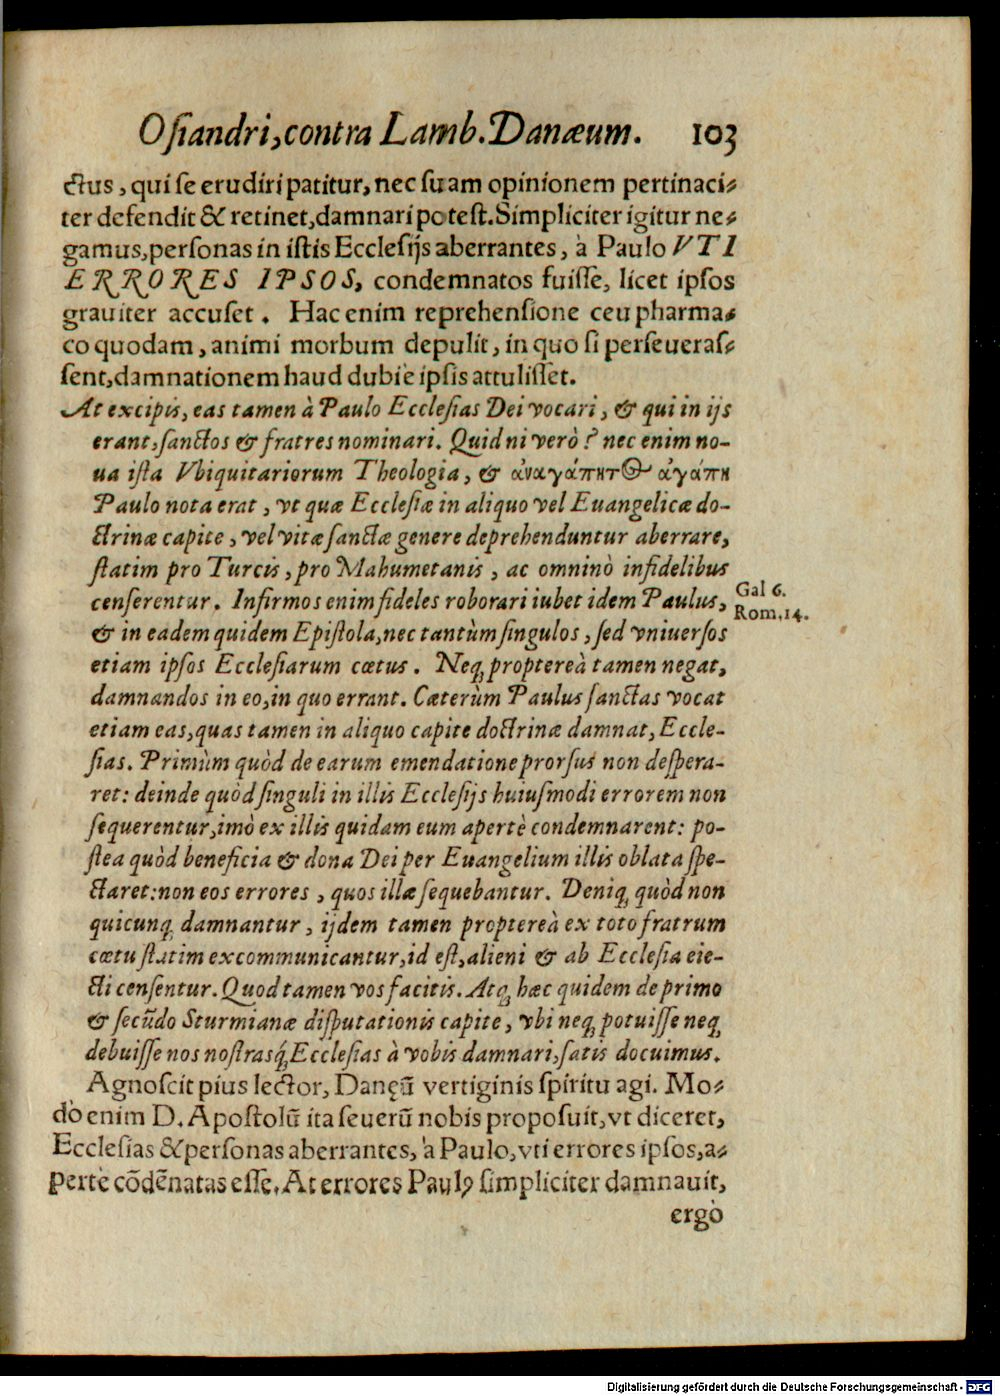 Osiandri, contra Lamb. Danæum. 103
ctus, qui se erudiri patitur, nec suam opinionem pertinaci-
ter defendit & retinet, damnari potest. Simpliciter igitur ne-
gamus, personas in istis Ecclesijs aberrantes, à Paulo VTI
ERRORES IPSOS, condemnatos fuisse, licet ipsos
grauiter accuset. Hac enim reprehensione ceu pharma-
co quodam, animi morbum depulit, in quo si perseueras-
sent, damnationem haud dubiè ipsis attulisset.
At excipis, eas tamen à Paulo Ecclesias Dei vocari, & qui in ijs
erant, sanctos & fratres nominari. Quid ni verò? nec enim no-
ua ista Vbiquitariorum Theologia, & ἀναγάπητος ἀγάπη
Paulo nota erat, vt quæ Ecclesiæ in aliquo vel Euangelicæ do-
ctrinæ capite, vel vitæ sanctæ genere deprehenduntur aberrare,
statim pro Turcis, pro Mahumetanis, ac omninò infidelibus
censerentur. Infirmos enim fideles roborari iubet idem Paulus,
Gal 6.
Rom. 14.
& in eadem quidem Epistola, nec tantùm singulos, sed vniuersos
etiam ipsos Ecclesiarum cœtus. Neq; proptereà tamen negat,
damnandos in eo, in quo errant. Cæterùm Paulus sanctas vocat
etiam eas, quas tamen in aliquo capite doctrinæ damnat, Eccle-
sias. Primùm quòd de earum emendatione prorsus non despera-
ret: deinde quòd singuli in illis Ecclesijs huiusmodi errorem non
sequerentur, imò ex illis quidam eum apertè condemnarent: po-
stea quòd beneficia & dona Dei per Euangelium illis oblata spe-
ctaret: non eos errores, quos illæ sequebantur. Deniq; quòd non
quicunq; damnantur, ijdem tamen proptereà ex toto fratrum
cœtu statim excommunicantur, id est, alieni & ab Ecclesia eie-
cti censentur. Quod tamen vos facitis. Atq; hæc quidem de primo
& secũdo Sturmianæ disputationis capite, vbi neq; potuisse neq;
debuisse nos nostrasq́; Ecclesias à vobis damnari, satis docuimus.
Agnoscit pius lector, Danęũ vertiginis spiritu agi. Mo-
dò enim D. Apostolũ ita seuerũ nobis proposuit, vt diceret,
Ecclesias & personas aberrantes, à Paulo, vti errores ipsos, a-
pertè cõdẽnatas esse. At errores Paulꝰ simpliciter damnauit,
ergò
Digitalisierung gefördert durch die Deutsche Forschungsgemeinschaft - DFG